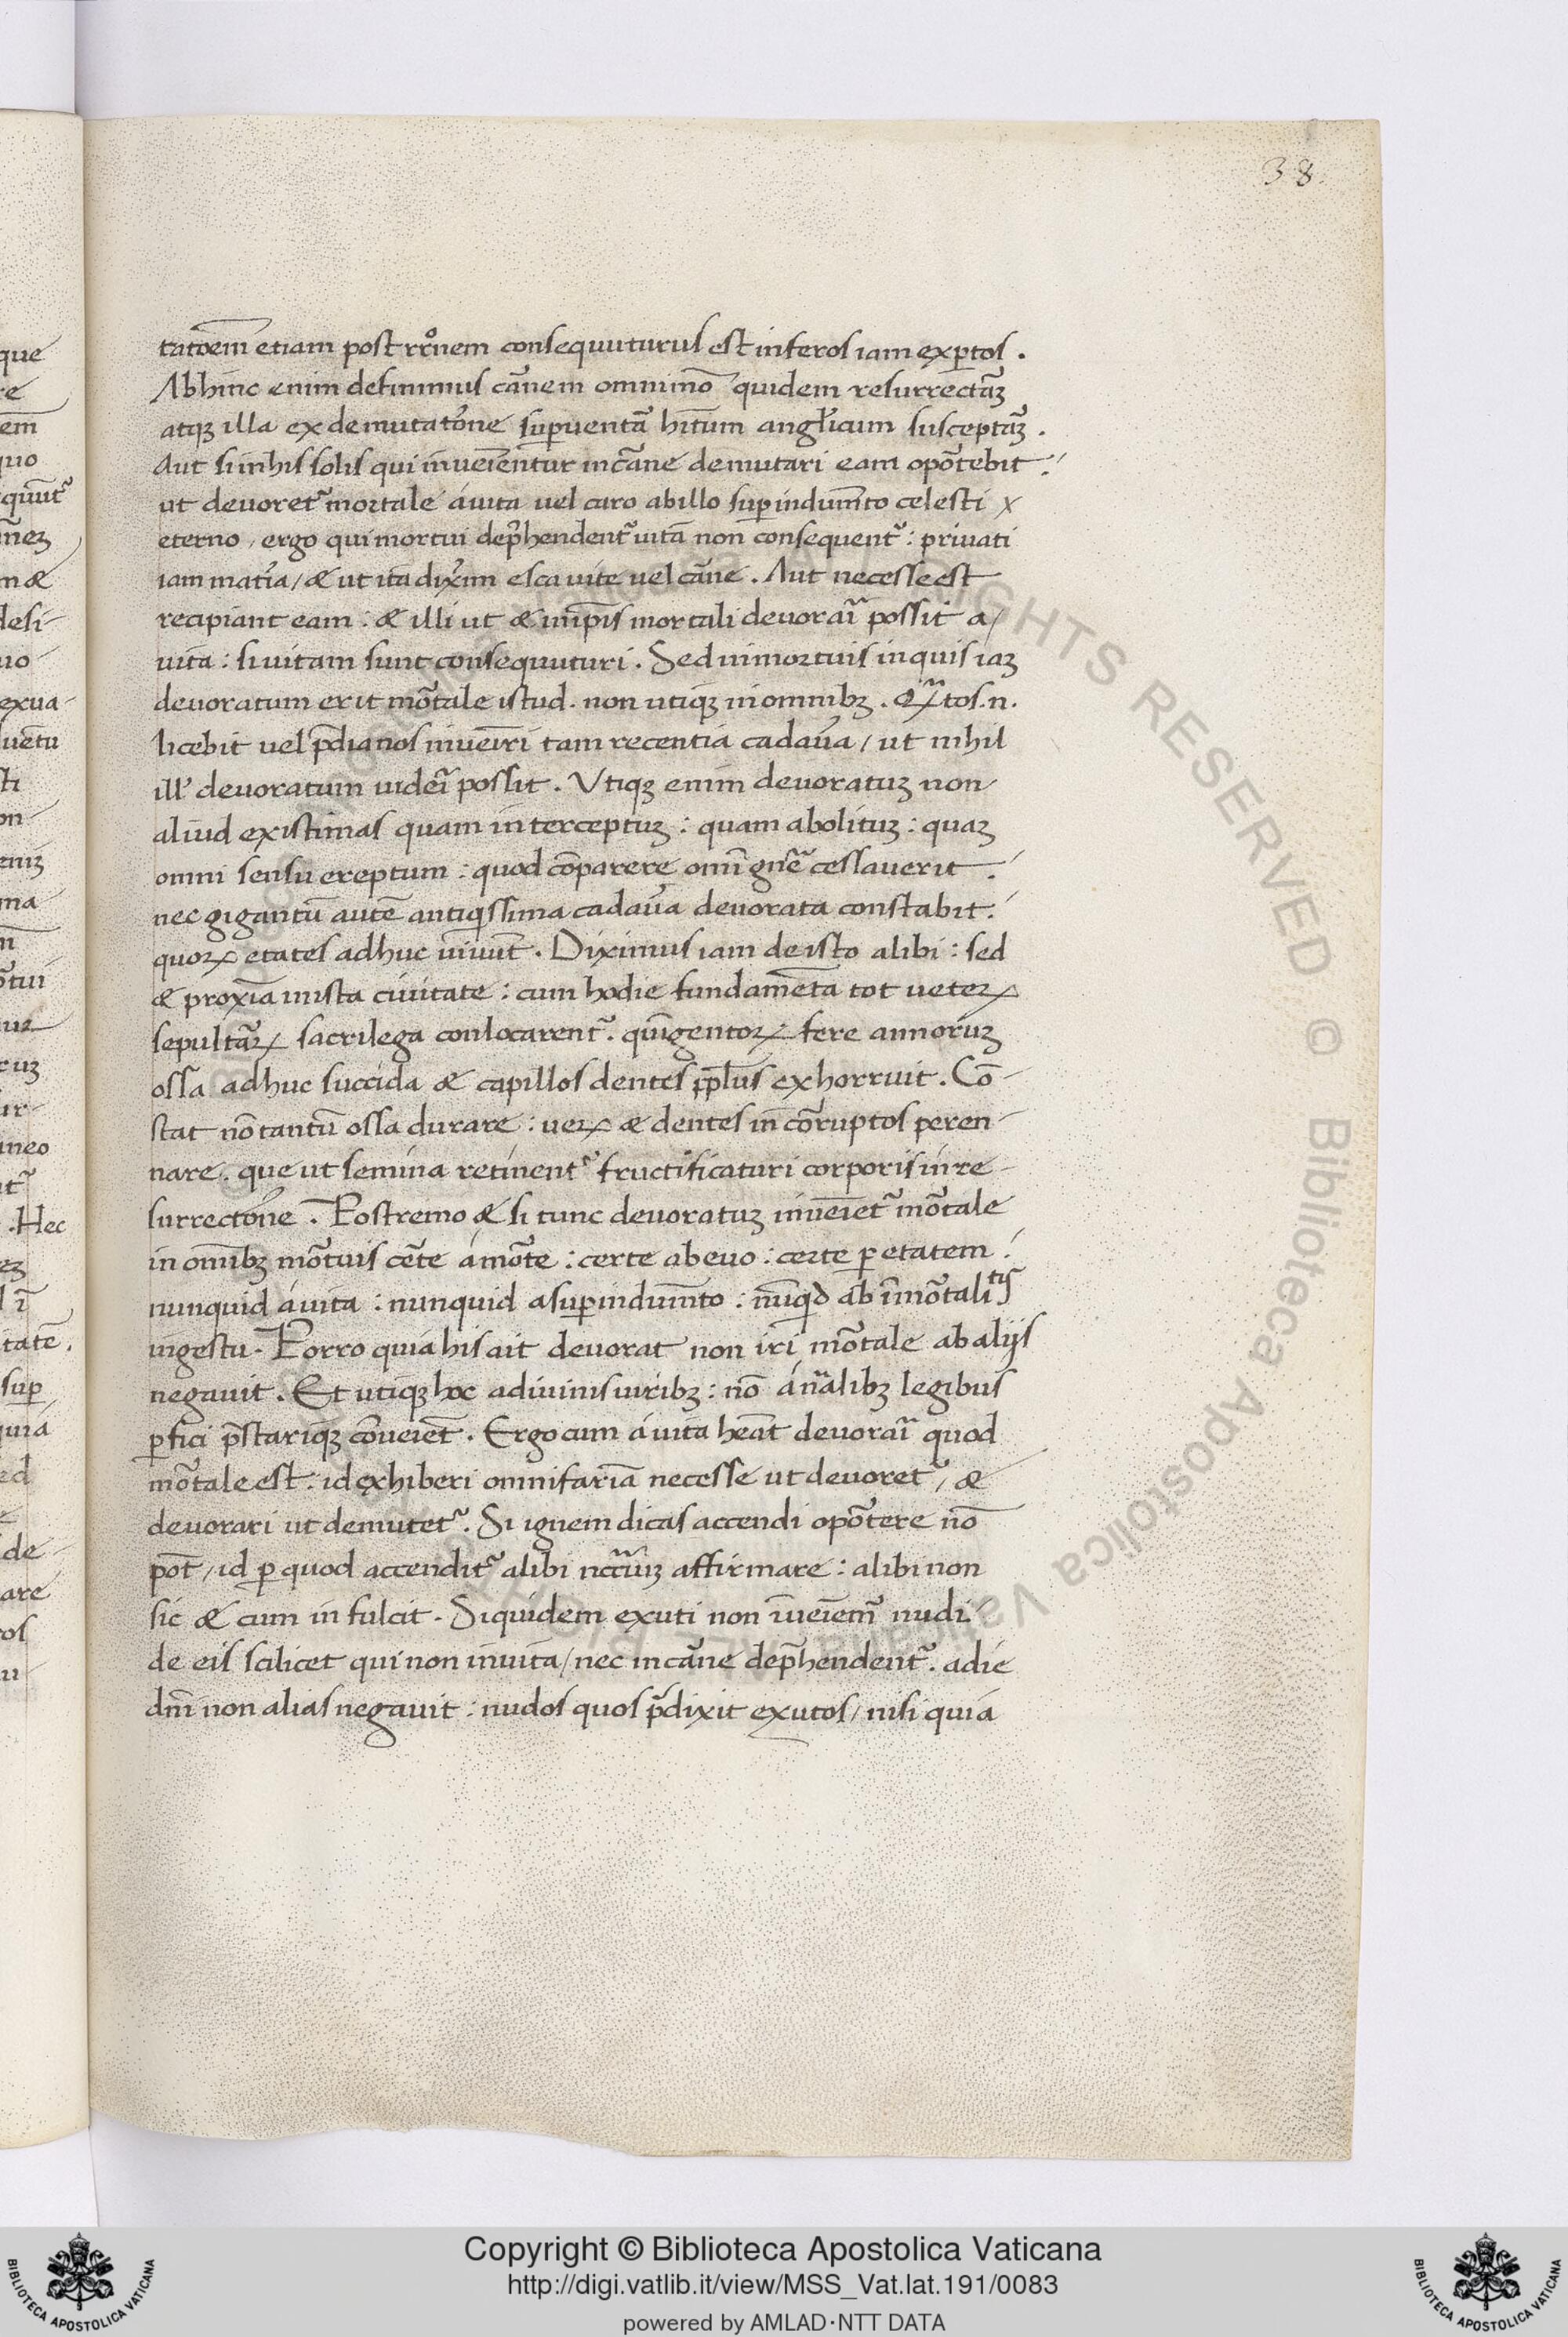 38.
tatōem etiam post rr̄onem consequuturus est inferos iam exꝑtos.
Abhinc enim definimus cārnem omnimo quidem resurrectāꝫ
atqꝫ illa ex demutatōne suꝑuentā hītum angl̄icum susceptāꝫ.
Aut si in his solis qui inueīentur in cārne demutari eam opōtebit:
ut deuoret᷑ mortale á uita vel caro ab illo suꝑindum̄to celesti &
eterno, ergo qui mortui dep̄hendent᷑ uitā non consequent᷑: priuati
iam mat̄ia, & ut ita dix̄im esca uite uel cārne. Aut necesse est
recipiant eam: & illi ut & in ip̄is mortali deuorari possit a
uita: si uitam sunt consequuturi. Sed in mortuis inquis iaꝫ
deuoratum erit mōtale istud. non utiqꝫ in omnibꝫ. Qꝫtos.n.
licebit uel p̄dianos inueīri tam recentia cadau̅a, ut nihil
ill᾿ deuoratum uideri possit. Vtiqꝫ enim deuoratuꝫ non
aliud existimas quam interceptuꝫ: quam abolituꝫ: quaꝫ
omni sensu ereptum: quod cōparere omī gn̄e cessauerit:
nec gigantū autē antiqissima cadau̅a deuorata constabit:
quoꝝ etates adhuc uiuūt. Diximus iam de isto alibi: sed
& proxīa in ista ciuitate: cum hodie fundamēta tot ueteꝝ
sepultāꝝ sacrilega conlocarent᷑. quīgentoꝝ fere annoruꝫ
ossa adhuc succida & capillos dentes pp̄lus exhorruit. Cō-
stat nō tantū ossa durare: ueꝝ & dentes incōruptos peren-
nare. que ut semina retinent᷑ fructificaturi corporis in re-
surrectōne. Postremo & si tunc deuoratuꝫ inueīet᷑ mōtale
in omībꝫ mōtuis cēte á mōte: certe ab euo: certe ꝑ etatem:
nunquid á uita: nunquid a suꝑindum̄to: nūqd ab īmōtalitis
ingestu. Porro quia his ait deuorat non iri mōtale ab alijs
negauit. Et utiqꝫ hoc a diuinis uiribꝫ: nō á nālibꝫ legibus
ꝑfici p̄stariqꝫ cōueīet. Ergo cum á uita heāt deuorari quod
mōtale est: id exhiberi omnifariā necesse ut deuoret᷑, &
deuorari ut demutet᷑. Si ignem dicas accendi opōtere nō
pōt, id ꝑ quod accendit᷑ alibi nc̄cīuꝫ affirmare: alibi non
sic & cum infulcit. Siquidem exuti non īueīem᷑ nudi
de eis scilicet qui non in uita, nec in cārne dep̄hendent᷑. a die
dn̄i non alias negauit: nudos quos p̄dixit exutos, nisi quia
Copyright © Biblioteca Apostolica Vaticana
http://digi.vatlib.it/view/MSS_Vat.lat.191/0083
powered by AMLAD·NTT DATA